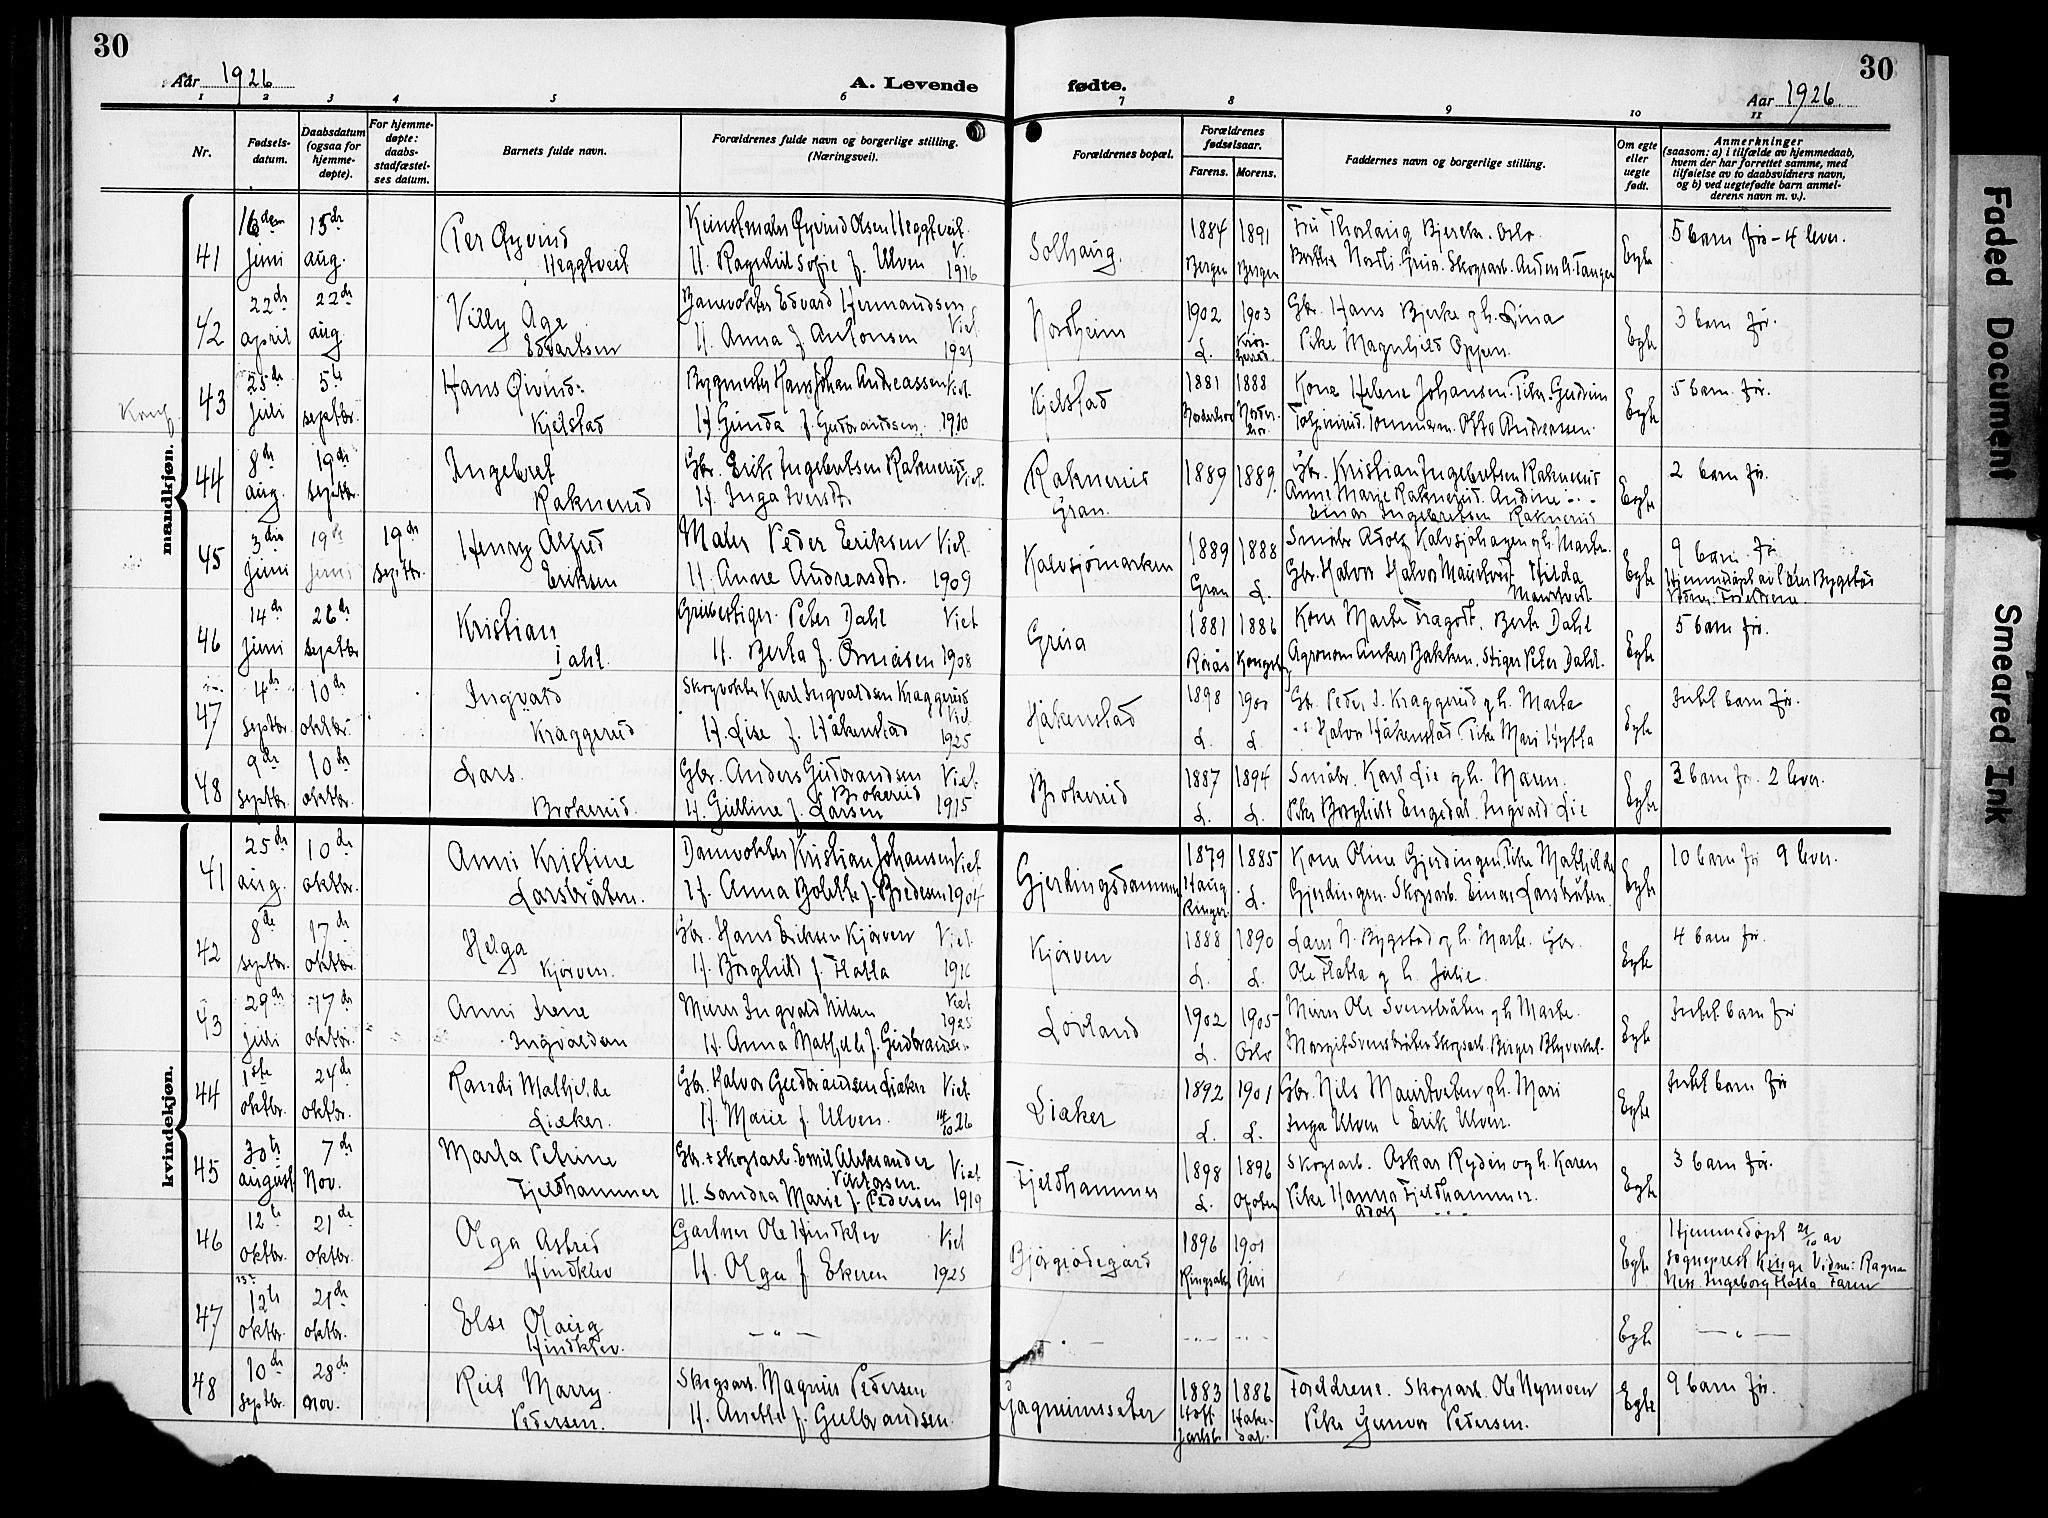 30
Aar 1926
A. Levende fødte.
30
Aar 1926
1 2 3 4 5 6 7 8 9 10 11
Nr.
Fødsels-
datum.
Daabsdatum
(ogsaa for
hjemme-
døpte).
For hjemme-
døpte:
daabs-
stadfæstel-
ses datum.
Barnets fulde navn.
Forældrenes fulde navn og borgerlige stilling.
(Næringsvei).
Forældrenes bopæl.
Forældrenes
fødselsaar.
Farens. Morens.
Faddernes navn og borgerlige stilling.
Om egte
eller
uegte
født.
Anmerkninger
(saasom: a) i tilfælde av hjemmedaab,
hvem der har forrettet samme, med
tilføielse av to daabsvidners navn,
og b) ved uegtefødte barn anmel-
derens navn m. v.).
mandkjøn.
41 juni 15de aug. Per Øyvind Heggtveit
Kunstmaler Øyvind Olsen Heggtveit
H. Ragnhil Sofie f. Ulven V. 1916
Solhaug. 1884 Bergen 1891 Bergen
Fru Thorlaug Bjercke. Oslo
Egte 5 barn før - 4 lever.
42 22de april 22de aug. Villy Age Edvartsen
Banevokter Edvard Hermandsen
H. Anna f. Antonsen Viet 1921
Nordheim 1902 L. 1903
Gbr. Hans Bjerke og h. Lina
Pike Magnhild Oppen.
Egte 3 barn før.
43 25de juli 5te septbr. Hans Øivind Kjelstad
Bygmester Hans Johan Andreassen Viet
H. Gunda f. Gudbrandsen. 1910
Kjelstad 1881 1888
Kone Helene Johansen. Pike. Gudrun
Otto Andreassen.
Egte 5 barn før.
44 8de aug. 19de septbr. Ingebret Raknerud
Gbr. Erik Ingebretsen Raknerud Viet.
H. Inga Iversdtr.
Raknerud Gran. 1889 1889.
Gbr. Kristian Ingebretsen Raknerud
Anne Marie Raknerud. Andine - " -
Einar Ingebretsen Raknerud
Egte 2 barn før.
45 juni 19de juni 19de septbr. Henry Alfred Eriksen
Maler Peder Eriksen Viet.
H. Anne Andreasdtr. 1909
Kalvsjømarken 1889 Gran 1888 L.
Småbr. Adolf Kalvsjøhagen og h. Marte.
Gbr. Halvor Halvor Hilda
Egte 9 barn før
46 14de juni 26de septbr Kristian Dahl.
Peter Dahl Viet
H. Berta f. 1908
Grua 1881 Røros 1886 Kongsberg
Kone Marte Berte Dahl
Agronom Anker Bakken. Stiger Peter Dahl.
Egte 5 barn før.
47 4de septbr. 10de oktbr. Ingvald Kraggerud
Skogvokter Karl Ingvaldsen Kraggerud
H. Lise f. Håkenstad Viet 1925
Håkenstad 1898 L. 1900 L.
Gbr. Peder I. Kraggerud og h. Marte
- " - Halvor Håkenstad Pike Mari Hytta
Egte Intet barn før.
48 9de septbr. 10de oktbr. Lars. Brokerud.
Gbr. Anders Gudbrandsen Brokerud Viet.
H. Gulline f. Larsen 1915
Brokerud 1887 L. 1894 L.
Småbr. Karl Lie og h. Maren.
Pike Borghild Engedal. Ingvald Lie
Egte 3 barn før. 2 lever.
kvindekjøn.
41 25de aug. 10de oktbr. Anni Kristine Larsbråten.
Damvokter Kristian Johansen Viet
H. Anna Bolette f. Bredesen 1904
Gjerdingsdammen 1879 Haug Ringer. 1885 L.
Kone Oline Gjerdingen. Pike Mathilde
Gjerdingen. Skogsarb. Einar Larsbråten.
Egte 10 barn før 9 lever.
42 8de septbr. 17de oktbr. Helga Kjørven.
Gbr. Hans Eriksen Kjørven Viet.
H. Borghild f. Flatla 1916
Kjørven 1888 L. 1890 L.
Lars N. Bygstad og h. Marte. Gbr.
Ole Flatla og h. Julie.
Egte 4 barn før.
43 29de juli 17de oktbr. Anni Irene Ingvaldsen
Murer Ingvald Nilsen Viet 1925
H. Anna Mathilde f. Gudbrandsen
Lovland 1902 L. 1905 Oslo
Murer Ole Svensbråten og h Marte.
Margit Svensbråten Skogsarb. Birger Blyverket.
Egte Intet barn før
44 1ste oktbr. 24de oktbr. Randi Mathilde Liaker.
Gbr. Halvor Gudbrandsen Liaker Viet
H. Marie f Ulven. 14/10 26
Liaker 1892 L. 1901 L.
Gbr. Nils Maurtveten og h. Mari
Inga Ulven Erik Ulven.
Egte Intet barn før
45 30te august 7de Nov. Marta Petrine Fjeldhammer
Gbr. + Skogsarb. Emil Aleksander Viktorsen. Viet
H. Sandra Marie f. Pedersen 1919
Fjeldhammer 1898 L. 1896 Ofoten
Skogsarb. Oskar Ryden og h. Karen
Pike Hanna Fjeldhammer.
Adolf - " -
Egte 3 barn før.
46 12te oktbr. 21de oktbr. Olga Astrid Hindklev
Gartner Ole Hindklev Viet
H. Olga f. Ekeren 1925
1896 Ringsaker 1901 Biri
Egte Hjemmedøpt 21/10 av
Sogneprest Kinge Vidner: Ragna
Ness. Ingeborg Flatla Faren
47 12te oktbr. 21de oktbr. Else Olaug Hindklev.
— " —
Egte — " —
48 10de septbr. 28de nov. Rut Marry Pedersen.
Skogsarb. Magnus Pedersen
H. Anette f. Gulbrandsen.
1883 1886 Hakedal.
Foreldrene. Skogsarb. Ole Nymoen
Pike Gunvor Pedersen.
Egte 9 barn før.
Faded Document
Smeared Ink